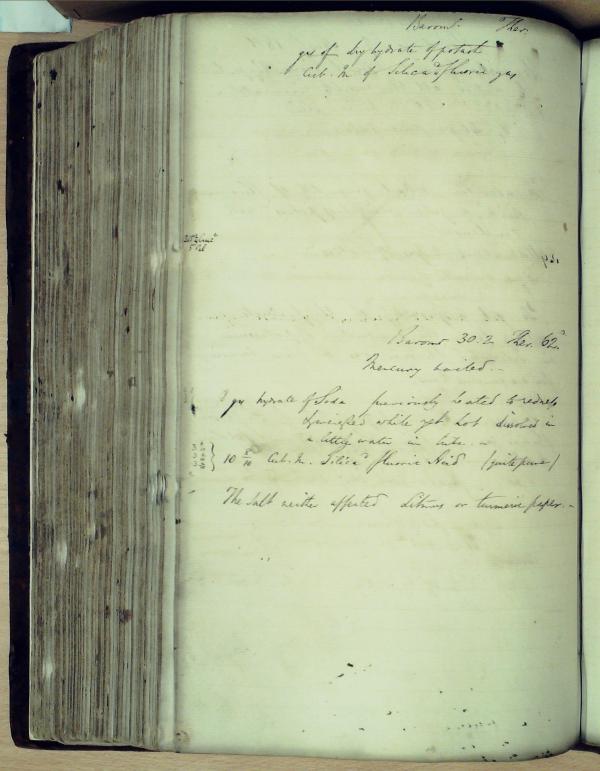 Baromr. Ther.
grs of dry hydrate of potash
Cub. In of Silicad. fluoric gas
Baromr 30.2 Ther. 62°.
Mercury boiled. -
grs hydrate of Soda previously heated to redness
& powdered while yet hot dissolved in
a little water in tube. -
10 8/10 Cub. In. Silicad fluoric Acid (quite pure)
The Salt neither affected Litmus or turmeric paper. -